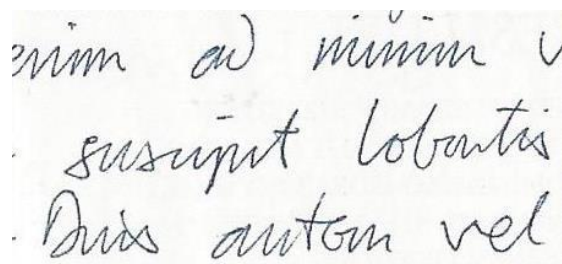 enim ad minim v
suscipit lobortis
Duis autem vel